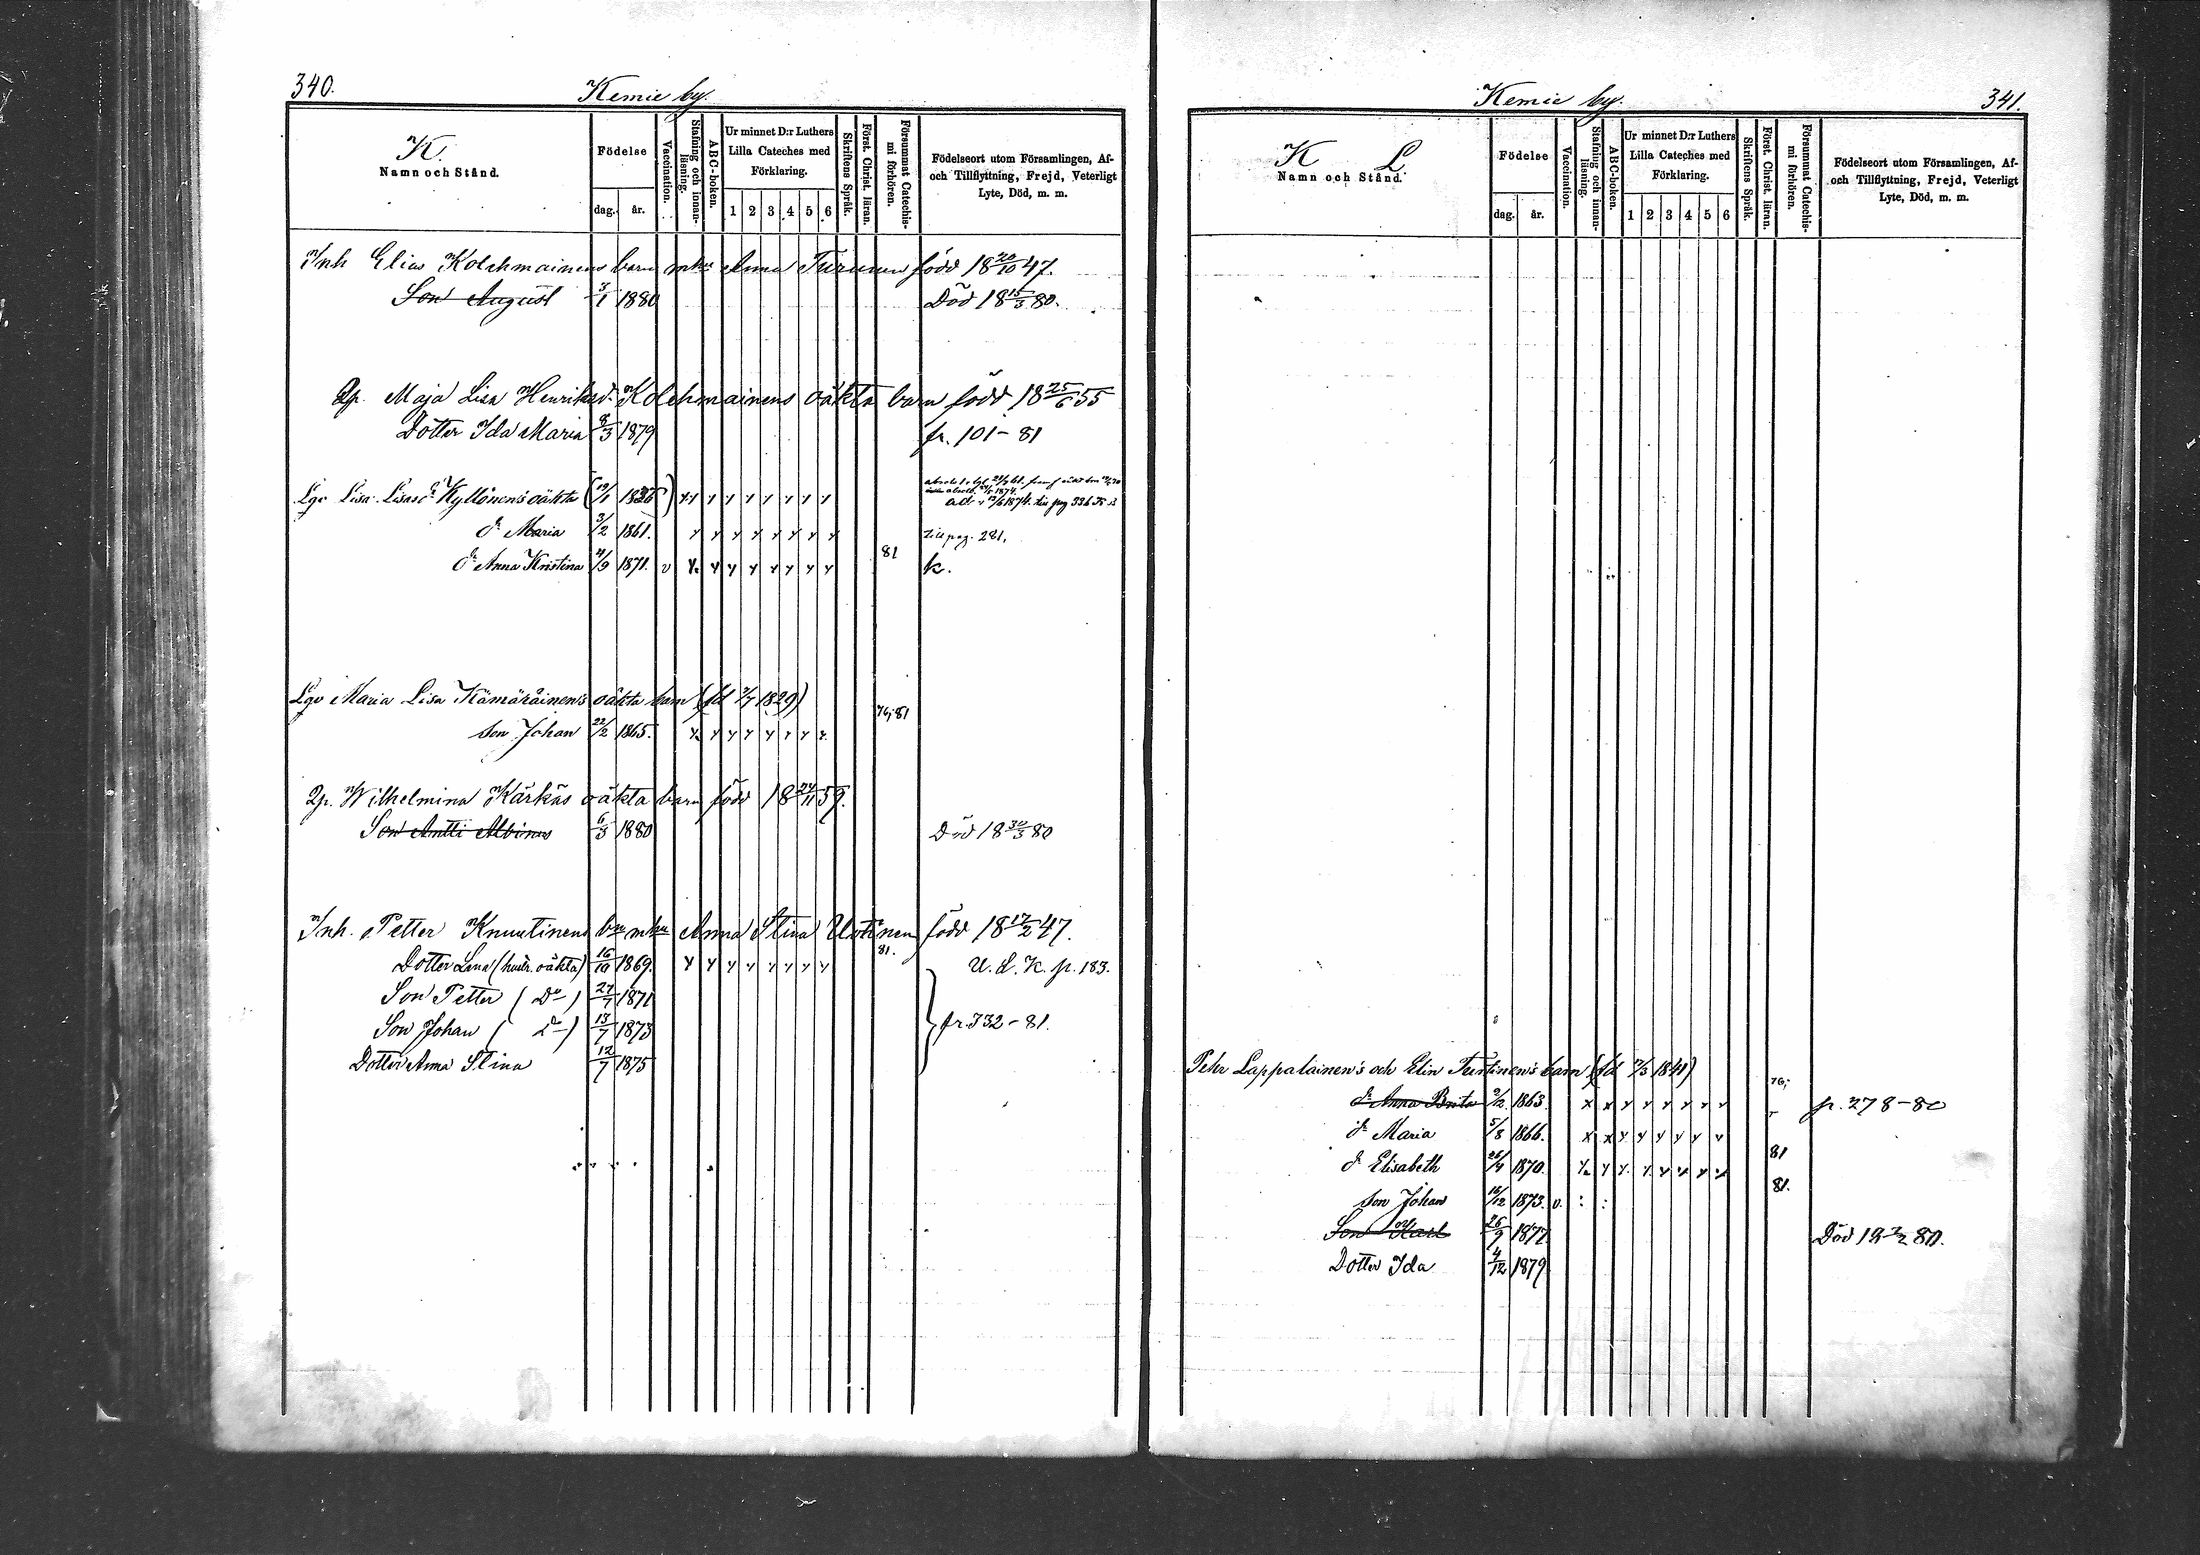 340.
Kemie by.
K.
Namn och Stånd.
Födelse
dag. år.
Vaccination.
Stafning och innan-
läsning.
ABC-boken.
Ur minnet D:r Luthers
Lilla Cateches med
Förklaring.
1 2 3 4 5 6
Skriftens Språk.
Först. Christ. läran.
Försummat Catechis-
mi förhören.
Födelseort utom Församlingen, Af-
och Tillflyttning, Frejd, Veterligt
Lyte, Död, m. m.
Inh Elias Kolehmainens barn mhu Anna Turunen född 18 20/10 47.
Son August 3/1 1880 Död 18 15/3 80.
Qp. Maja Lisa Henriksd. Kolehmainens oäkta barn född 18 25/6 55
Dotter Ida Maria 8/3 1879 fr. 101-81
Lgo Lisa Lisasd Kyllönen's oäkta (19/1 1836)
adr 1874. pag 336
dr Maria 3/2 1861. Till pag. 281.
dr Anna Kristina 4/9 1871. v 81 k.
Lgo Maria Lisa Kämäräinen's oäkta barn (fd 2/7 1829)
76; 81
son Johan 22/2 1865.
Qp. Wilhelmina Kärkäs oäkta barn född 18 24/11 59.
Son Antti Albinus 6/3 1880 Död 18 30/3 80
Inh. Petter Knuutinens bn mhu Anna Stina Uotinen född 18 17/2 47.
Dotter Lena (hustr. oäkta) 16/10 1869. 81. U. L. K. p. 183.
Son Petter (Do) 27/7 1871
Son Johan (Do) 13/7 1873 fr. 332-81.
Dotter Anna Stina 12/7 1875
Kemie by.
341.
K L
Namn och Stånd.
Födelse
dag. år.
Vaccination.
Stafning och innan-
läsning.
ABC-boken.
Ur minnet D:r Luthers
Lilla Cateches med
Förklaring.
1 2 3 4 5 6
Skriftens Språk.
Först. Christ. läran.
Försummat Catechis-
mi förhören.
Födelseort utom Församlingen, Af-
och Tillflyttning, Frejd, Veterligt
Lyte, Död, m. m.
Pehr Lappalainen's och Elin Turtinen's barn (fd 2/3 1841)
76;
dr Anna Brita 2/2 1863. p. 278-80
dr Maria 5/8 1866.
81
dr Elisabeth 26/4 1870.
81.
son Johan 16/12 1873. v.
Son Karl 26/9 1877. Död 18 2/2 80.
Dotter Ida 4/12 1879